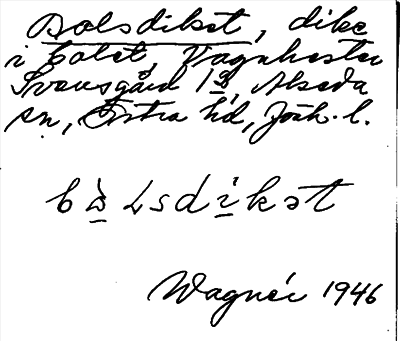 Bolsdiket, dike
i Bolet, Vagnhester
Svensgård 1³, Alseda
sn, Östra hd, Jönk. l.
bòLsdikət
Wagnér 1946